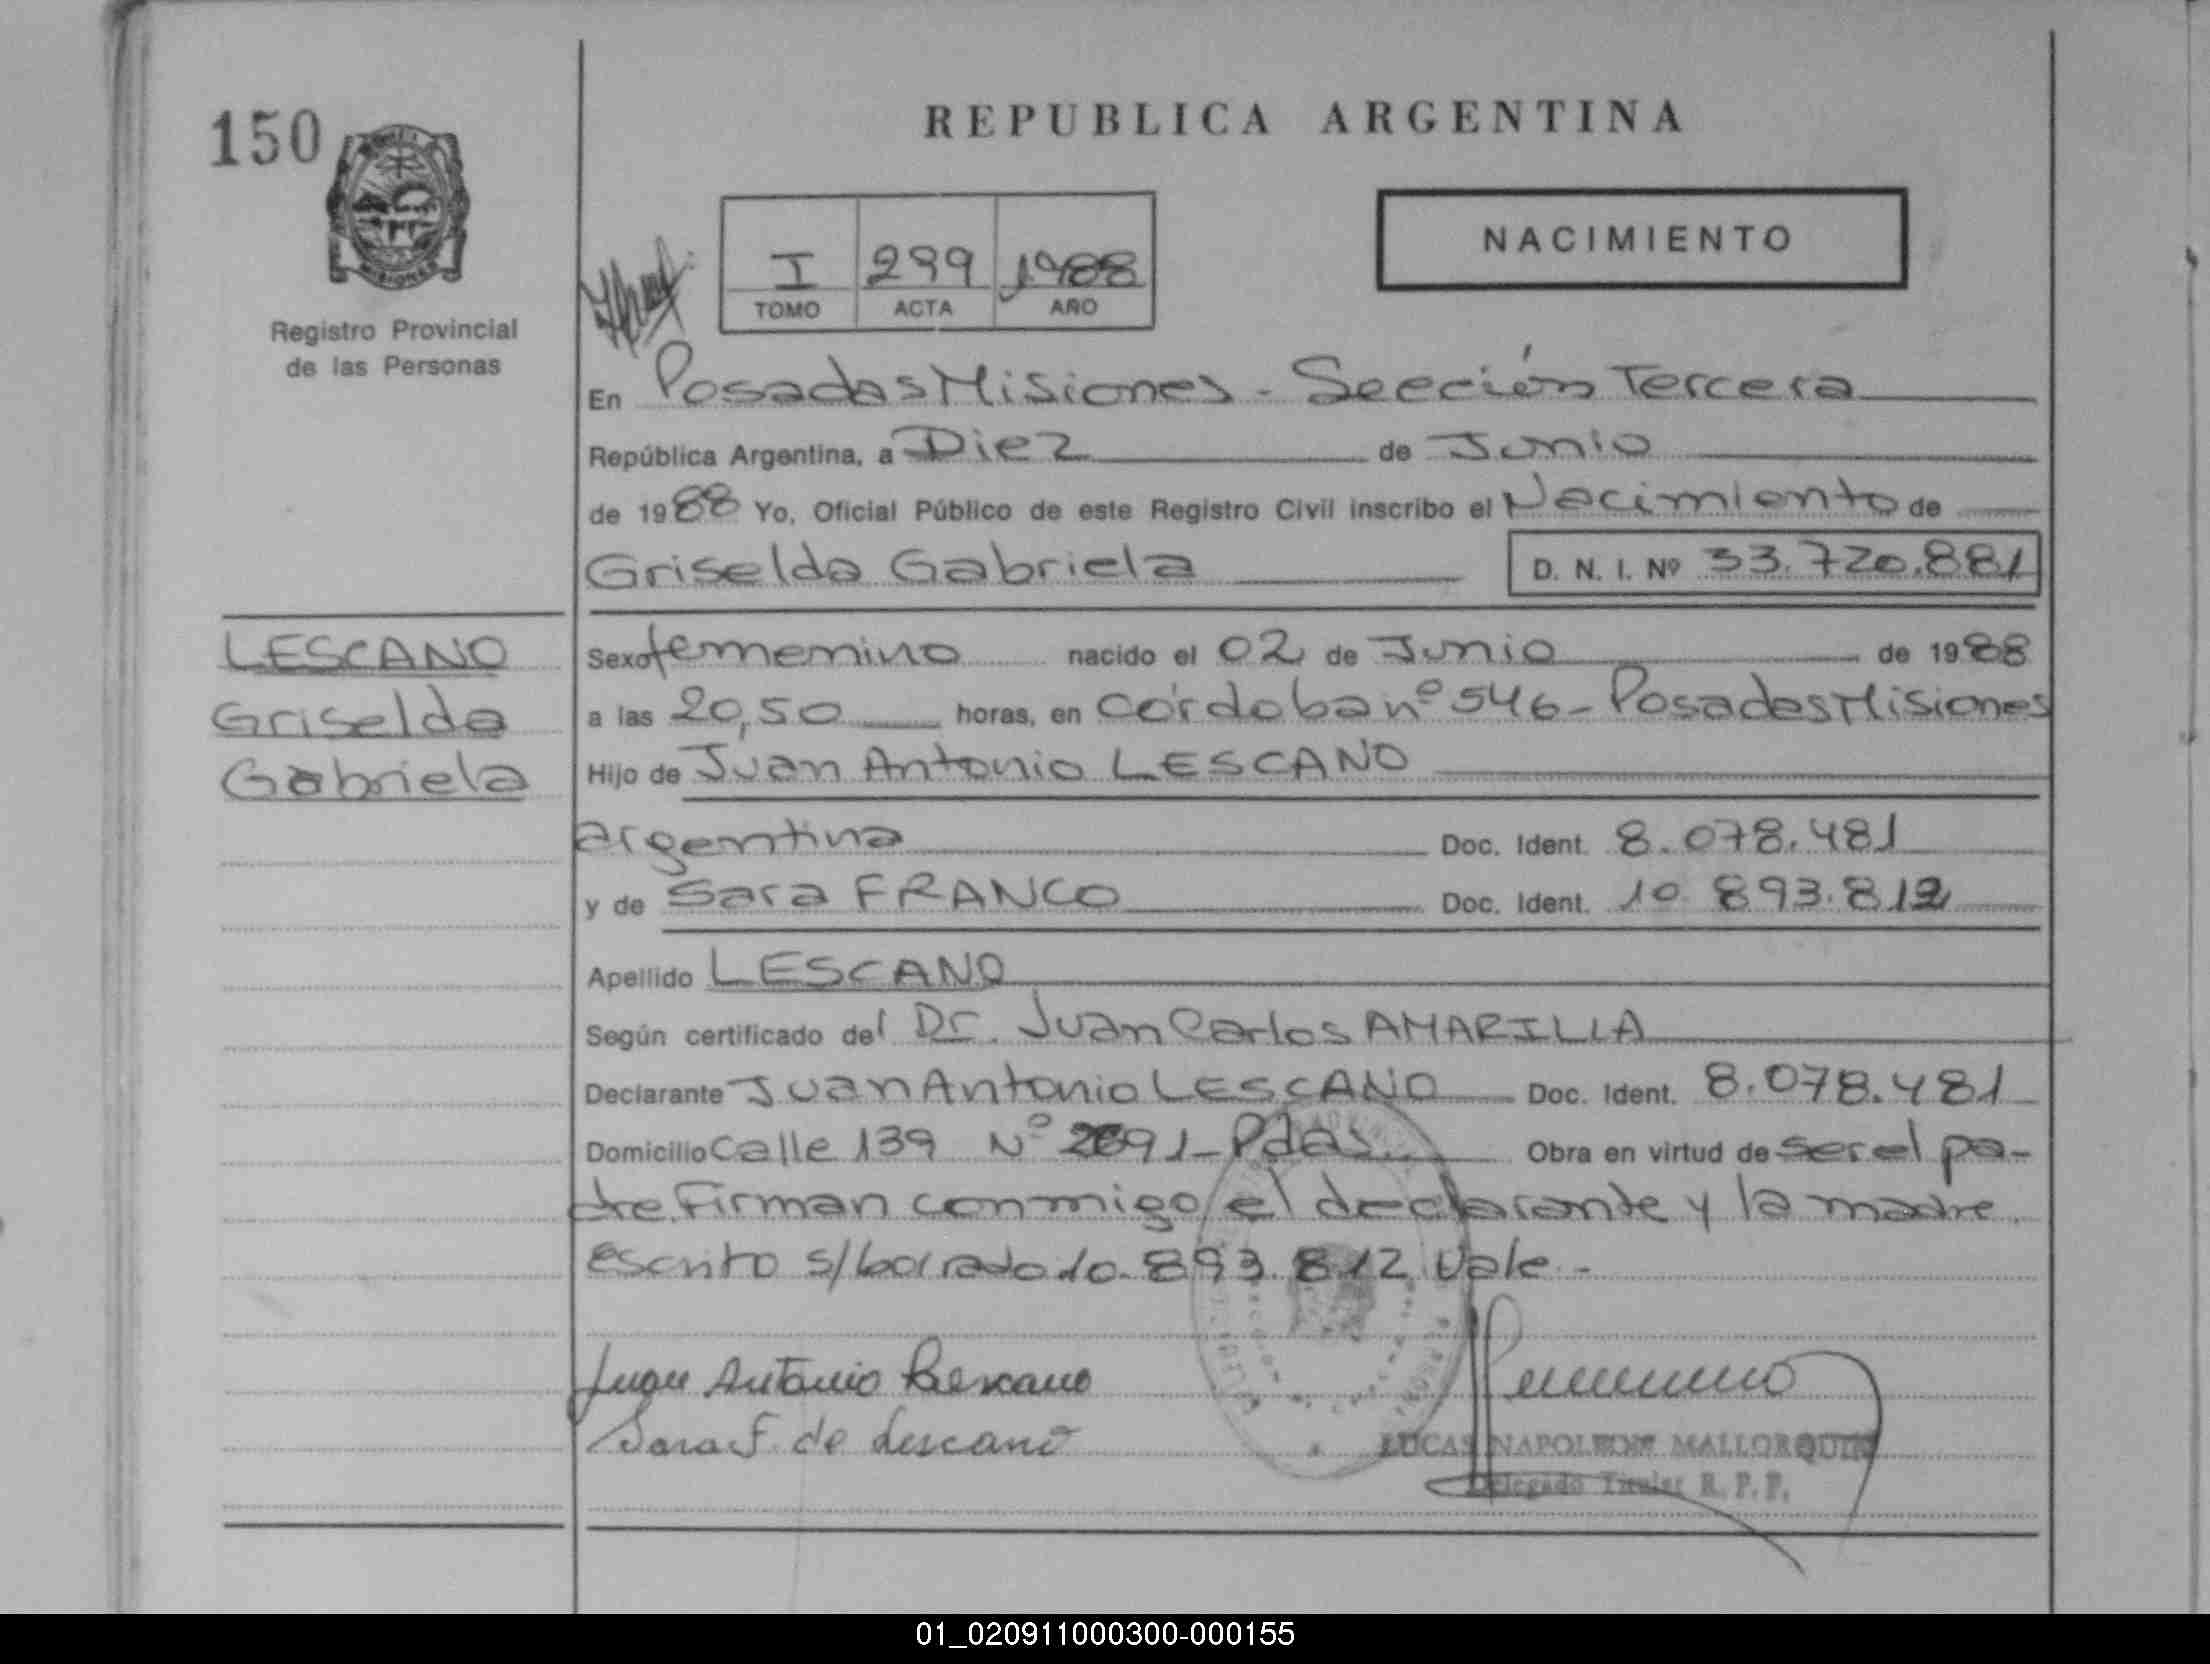 150
REPUBLICA ARGENTINA
NACIMIENTO
I 299 1988
TOMO ACTA AÑO
Registro Provincial
de las Personas
En Posadas Misiones - Sección Tercera
República Argentina, a Diez de Junio
de 1988 Yo, Oficial Público de este Registro Civil inscribo el Nacimiento de
Griselda Gabriela D. N. I. Nº 33.720.881
LESCANO
Griselda
Gabriela
Sexo femenino nacido el 02 de Junio de 1988
a las 20,50 horas, en Córdoba nº 546 - Posadas Misiones
Hijo de Juan Antonio LESCANO
argentina Doc. Ident. 8.078.481
y de Sara FRANCO Doc. Ident. 10.893.812
Apellido LESCANO
Según certificado del Dr. Juan Carlos AMARILLA
Declarante Juan Antonio LESCANO Doc. Ident. 8.078.481
Domicilio Calle 139 Nº 2691 - Pdas. Obra en virtud de ser el pa-
dre. Firman conmigo el declarante y la madre.
escrito s/borrado 10.893.812 Vale -
Juan Antonio Lescano
Sara F. de Lescano
LUCAS NAPOLEON MALLORQUIN
Delegado Titular R. P. P.
01_020911000300-000155